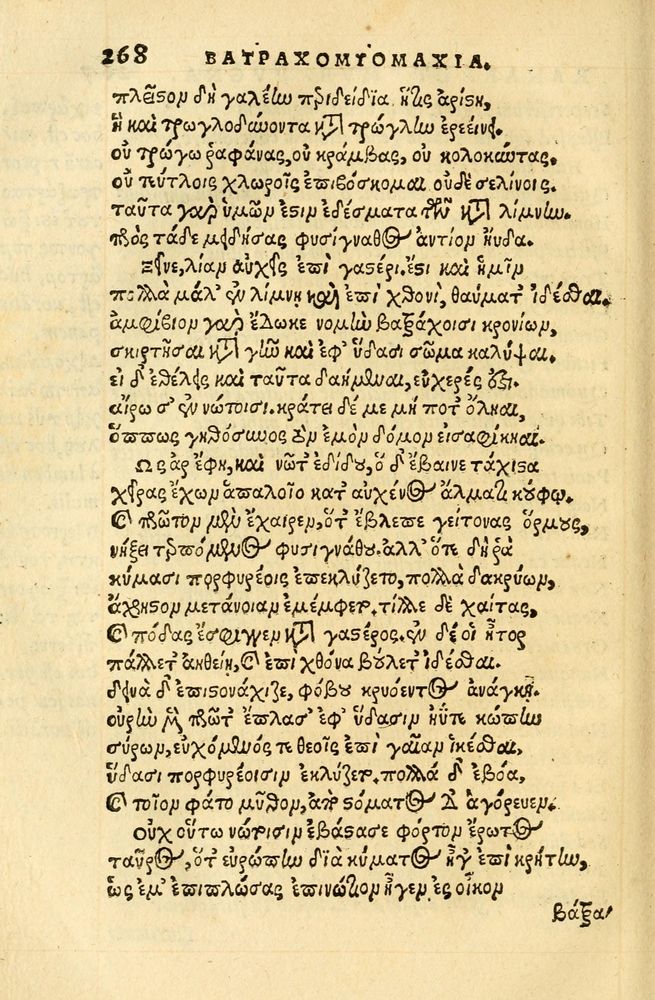 268 ΒΑΤΡΑΧΟΜΥΟΜΑΧΙΑ.
πλεῖστον δὴ γαλέην περιδείδια ἥτις ἀρίστη,
ἢ καὶ τρωγλοδύνοντα κατὰ τρώγλην ἐρεείνει.
οὐ τρώγω ῥαφάνας, οὐ κράμβας, οὐ κολοκύντας.
οὐ πεύτλοις χλωροῖς ἐπιβόσκομαι οὐδὲ σελίνοις.
ταῦτα γὰρ ὑμῶν ἐστιν ἐδέσματα τῶν κατὰ λίμνην.
πρὸς τάδε μειδήσας φυσίγναθος ἀντίον ηὔδα.
ξεῖνε, λίαν αὐχεῖς ἐπὶ γαστέρι. ἔστι καὶ ἡμῖν
πολλὰ μάλ' ἐν λίμνῃ καὶ ἐπὶ χθονὶ, θαύματ' ἰδέσθαι.
ἀμφίβιον γὰρ ἔδωκε νομὴν βατράχοισι κρονίων,
σκιρτῆσαι κατὰ γῆν καὶ ἐφ' ὕδασι σῶμα καλύψαι.
εἰ δ' ἐθέλεις καὶ ταῦτα δαήμεναι, εὐχερές ἐστι.
αἴρω σ' ἐν νώτοισι. κράτει δέ με μή ποτ' ὄληαι,
ὅππως γηθόσυνος τὸν ἐμὸν δόμον εἰσαφίκηαι.
Ὣς ἄρ ἔφη, καὶ νῶτ' ἐδίδου, ὁ δ' ἔβαινε τάχιστα
χεῖρας ἔχων ἁπαλοῖο κατ' αὐχένος ἅλματι κούφῳ.
καὶ πρῶτον μὲν ἔχαιρεν, ὅτ' ἔβλεπε γείτονας ὅρμους,
νήξει τερπόμενος φυσιγνάθου. ἀλλ' ὅτε δή ῥα
κύμασι πορφυρέοις ἐπεκλύζετο, πολλὰ δακρύων,
ἄχρηστον μετάνοιαν ἐμέμφετο. τίλλε δὲ χαίτας,
καὶ πόδας ἔσφιγγεν κατὰ γαστέρος. ἐν δέ οἱ ἦτορ
πάλλετ' ἀηθείῃ, καὶ ἐπὶ χθόνα βούλετ' ἰδέσθαι.
δεινὰ δ' ἐπιστονάχιζε, φόβου κρυόεντος ἀνάγκῃ.
οὐρὴν μὲν πρῶτ' ἔπλασ' ἐφ' ὕδασιν ἠΰτε κώπην
σύρων, εὐχόμενός τε θεοῖς ἐπὶ γαῖαν ἱκέσθαι,
ὕδασι πορφυρέοισιν ἐκλύζετο. πολλὰ δ' ἐβόα,
καὶ τοῖον φάτο μῦθον, ἀπὸ στόματος τ' ἀγόρευεν.
Οὐχ οὕτω νώτοισιν ἐβάστασε φόρτον ἔρωτος
ταῦρος, ὅτ' εὐρώπην διὰ κύματος ἦγ' ἐπὶ κρήτην,
ὡς ἔμ' ἐπιπλώσας ἐπινώτιον ἦγεν ἐς οἶκον
βάτρα